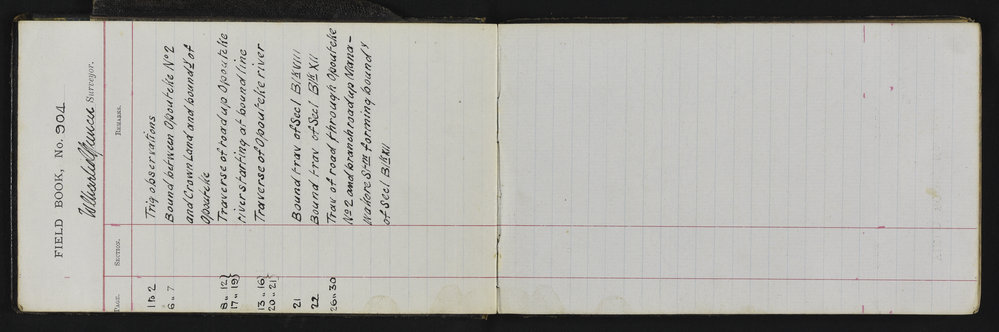 FIELD BOOK, No. 904
Surveyor.
PAGE. SECTION. REMARKS.
1 to 2 Trig observations
6 " 7 Bound between Opouteke No 2
and Crown Land and boundy of
Opouteke
8 " 12 } Traverse of road up Opouteke
17 " 19 } river starting at bound line
13 " 16 } Traverse of Opouteke river
20 " 21 }
21 Bound trav of Sec 1 Blk VIII
22 Bound trav of Sec 1 Blk XII
26 " 30 Trav of road through Opouteke
No 2 and branch road up Mana-
wakore Strm forming boundy
of Sec 1 Blk XII